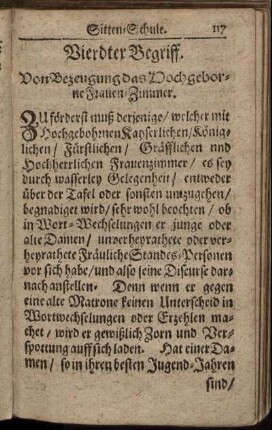 Sitten-Schule. 117
Vierdter Begriff.
Von Bezeugung das Hochgebor-
ne Frauen-Zimmer.
ZU förderst muß derjenige / welcher mit
Hochgebohrnen Kayserlichen / König-
lichen / Fürstlichen / Gräfflichen und
Hochherrlichen Frauenzimmer / es sey
durch wasserley Gelegenheit / entweder
über der Tafel oder sonsten umzugehen /
begnadiget wird / sehr wohl beochten / ob
in Wort-Wechselungen er junge oder
alte Damen / unverheyrathete oder ver-
heyrathete Fräuliche Standes-Personen
vor sich habe / und also seine Discurse dar-
nach anstellen. Denn wenn er gegen
eine alte Matrone keinen Unterscheid in
Wortwechselungen oder Erzehlen ma-
chet / wird er gewißlich Zorn und Ver-
spottung auff sich laden. Hat einer Da-
men / so in ihren besten Jugend-Jahren
sind /